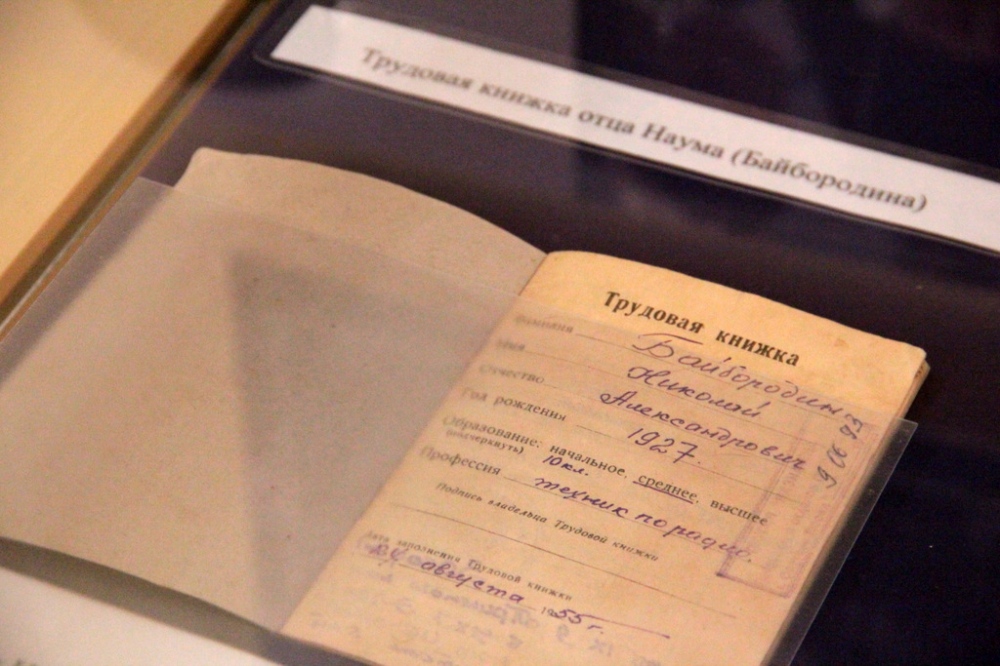 Трудовая книжка отца Наума (Байбородина)
Трудовая книжка
Фамилия Байбородин
Имя Николай
Отчество Александрович
Год рождения 1927.
Образование: начальное, среднее, высшее
(подчеркнуть) 10 кл.
Профессия техник по радио.
Подпись владельца Трудовой книжки
Дата заполнения Трудовой книжки
августа 1955 г.
9 06 93